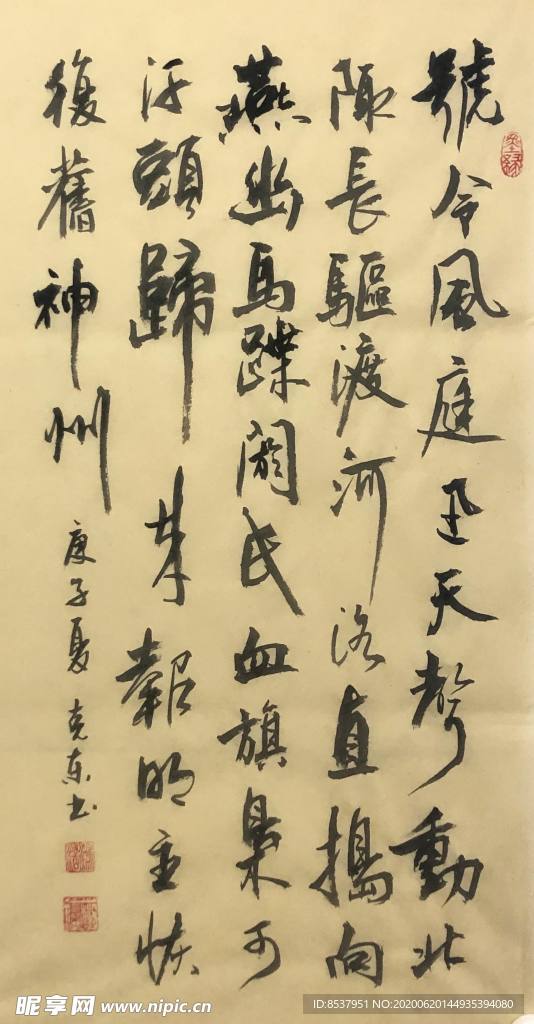 號令風庭迅天聲動北
陬長驅渡河洛直搗向
燕幽馬蹀閼氏血旗梟可
汗頭歸来報明主恢
復舊神州
庚子夏克东书
墨缘
昵享网 www.nipic.cn
ID:8537951 NO:20200620144935394080